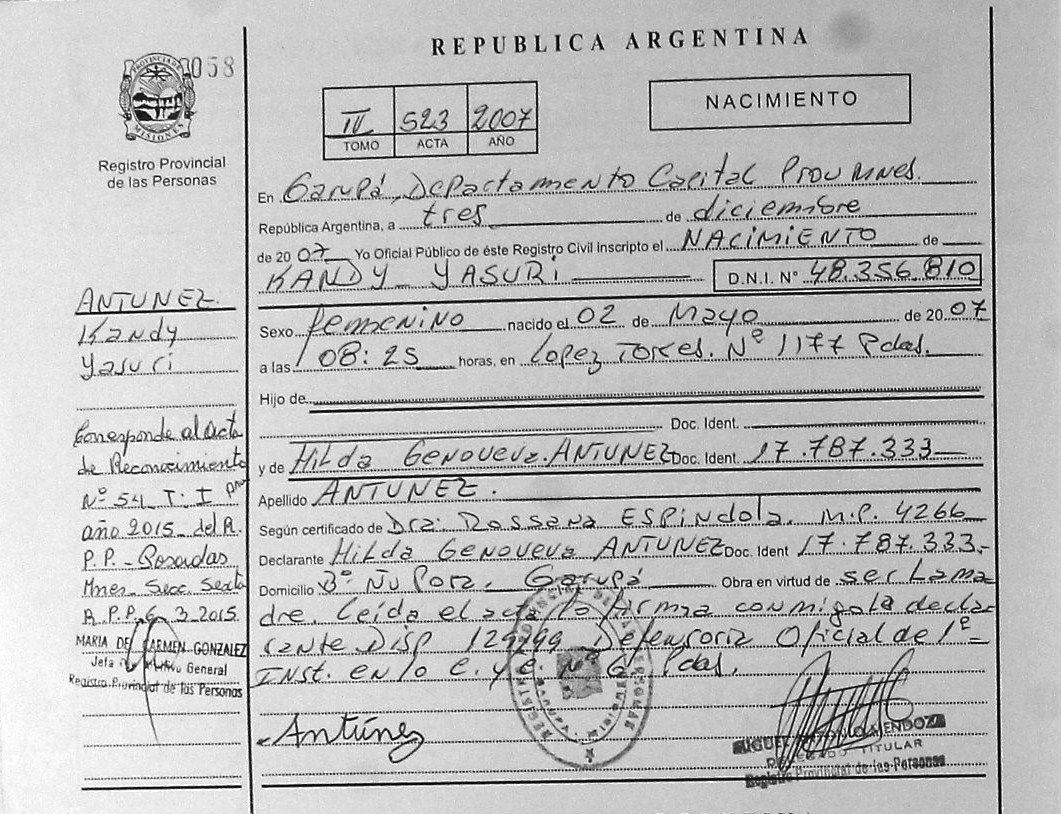 REPUBLICA ARGENTINA
058
PROVINCIA DE MISIONES
Registro Provincial
de las Personas
IV 523 2007
TOMO ACTA AÑO
NACIMIENTO
En Garupá, Departamento Capital Prov Mnes.
República Argentina, a tres de diciembre
de 20 07 Yo Oficial Público de éste Registro Civil inscripto el NACIMIENTO de
KANDY YASURI D.N.I. N° 48.356.810
Sexo femenino nacido el 02 de Mayo de 20 07
a las 08:25 horas, en Lopez Torres. Nº 1177 Pdas.
Hijo de
Doc. Ident.
y de Hilda Genoveva ANTUNEZ Doc. Ident. 17.787.333
Apellido ANTUNEZ.
Según certificado de Dra: Rossana ESPINDOLA. M.P. 4266
Declarante Hilda Genoveva ANTUNEZ Doc. Ident 17.787.333-
Domicilio Bº Ñu Pora. Garupá Obra en virtud de ser la ma
dre. Leída el acta la firma conmigo la decla
rante Disp 129/99 Defensoria Oficial de 1º
Inst. en lo C. y C. Nº 6 Pdas.
Antúnez
MIGUEL MENDOZA
TITULAR
Registro Provincial de las Personas
ANTUNEZ
Kandy
Yasuri
Corresponde al acta
de Reconocimiento
Nº 54 T: I
año 2015 del R.
P.P. - Posadas
Mnes. Secc. Sexta
R.P.P. 6-3-2015.
MARIA DEL CARMEN GONZALEZ
Jefa General
Registro Provincial de las Personas